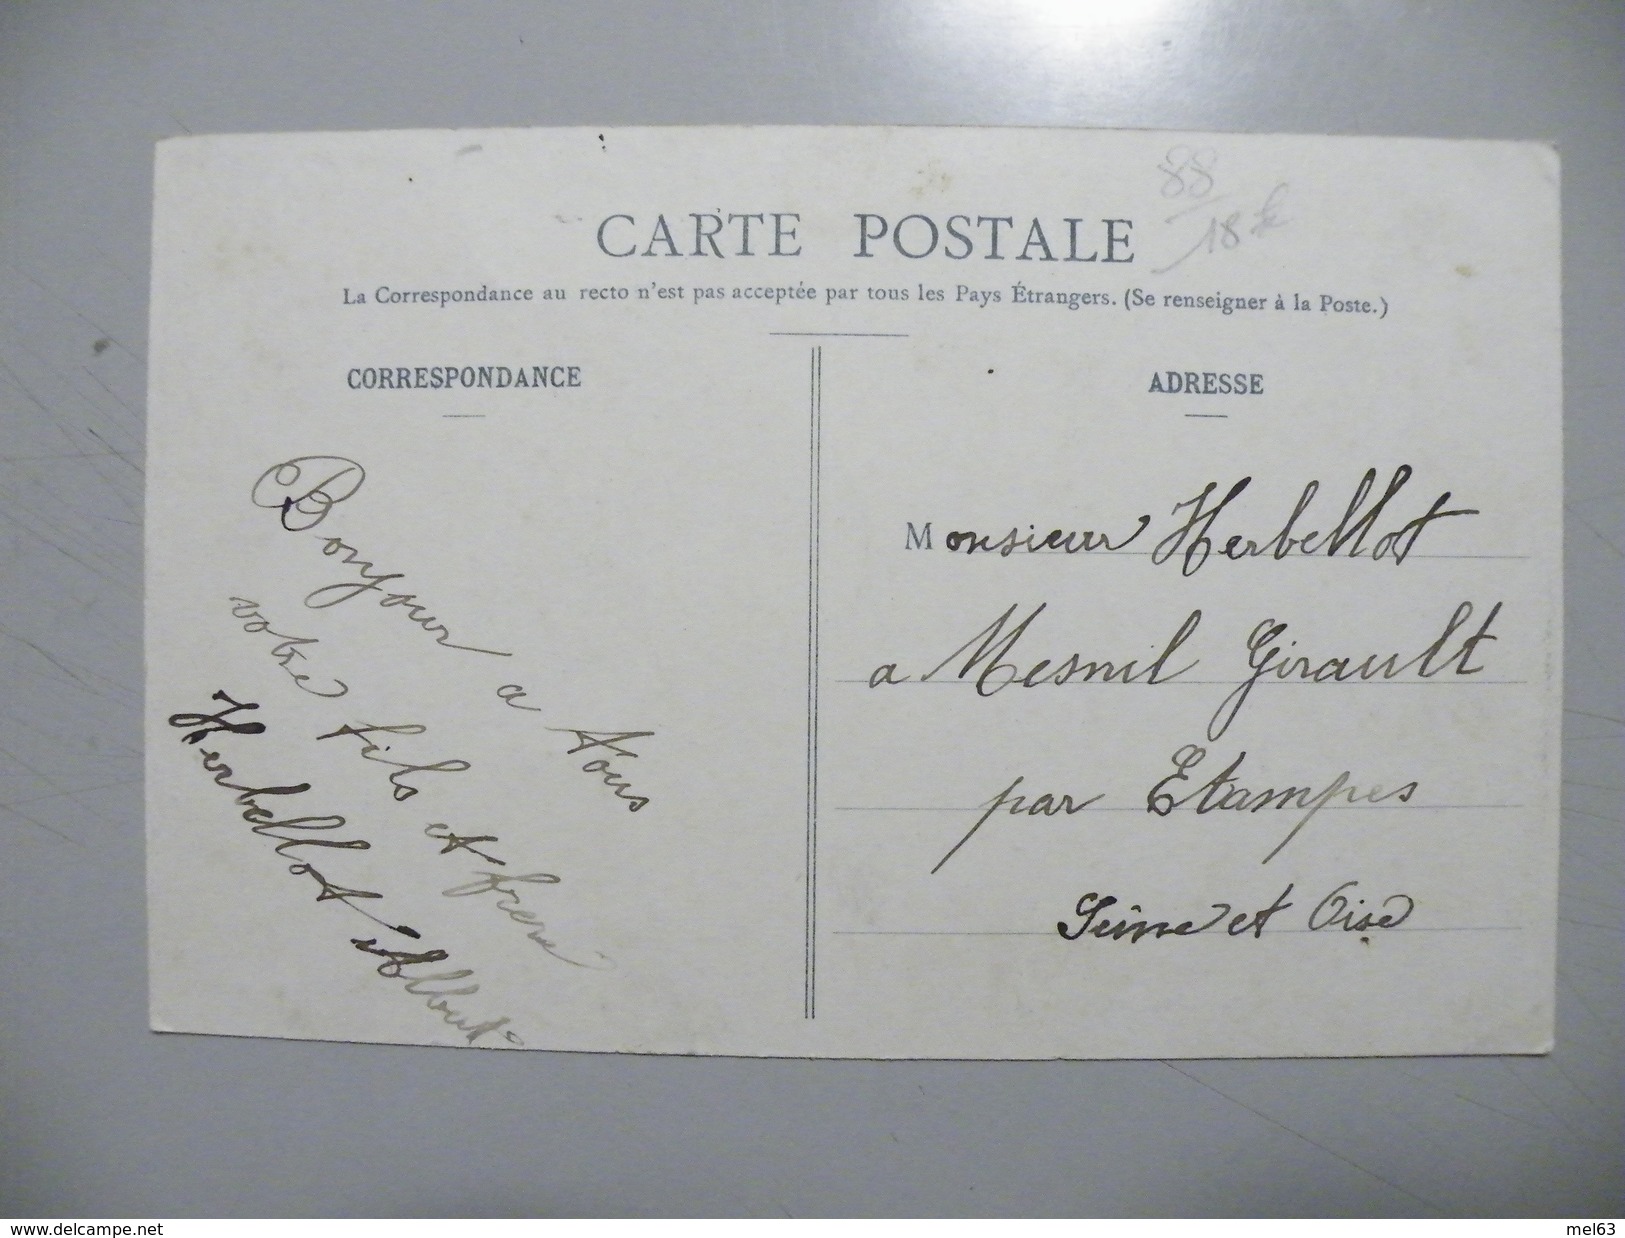 88
18 €
CARTE POSTALE
La Correspondance au recto n'est pas acceptée par tous les Pays Étrangers. (Se renseigner à la Poste.)
CORRESPONDANCE
Bonjour a tous
votre fils et frere
Herbellot Albert
ADRESSE
Monsieur Herbellot
a Mesnil Girault
par Etampes
Seine et Oise
www.delcampe.net
mel63